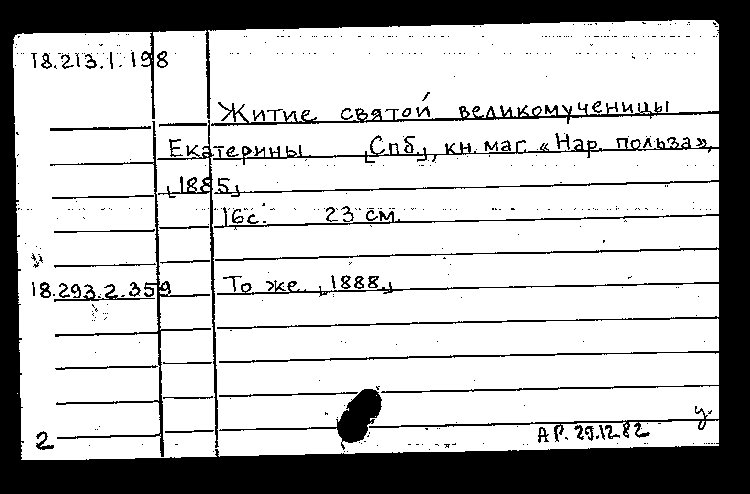 18.213.1.198
Житие святой великомученицы
Екатерины. [Спб], кн. маг. «Нар. польза»,
[1885]
16с. 23 см.
18.293.2.359 То же. [1888]
2
АР. 29.12.82 у